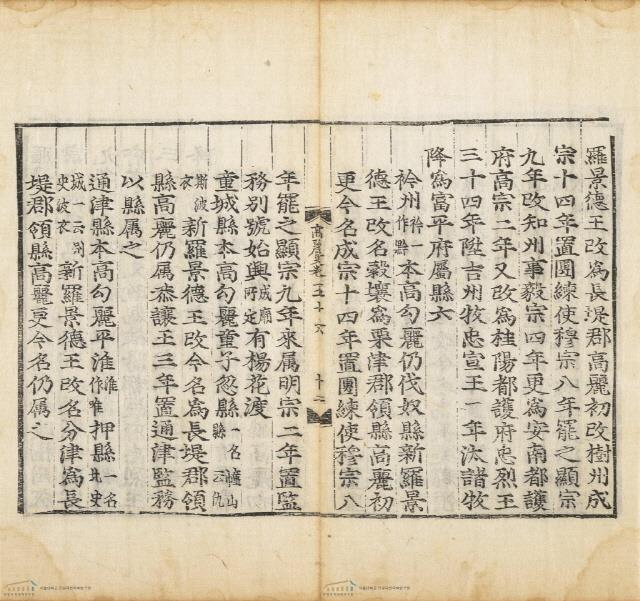 羅景德王改爲長堤郡高麗初改樹州成
宗十四年置團練使穆宗八年罷之顯宗
九年改知州事毅宗四年更爲安南都護
府高宗二年又改爲桂陽都護府忠烈王
三十四年陞吉州牧忠宣王二年汰諸牧
降爲富平府屬縣六
衿州衿一作黔本高勾麗仍伐奴縣新羅景
德王改名穀壤爲栗津郡領縣高麗初
更今名成宗十四年置團練使穆宗八
高麗史卷五十六 十二
年罷之顯宗九年來属明宗二年置監
務別號始興成廟所定有楊花渡
童城縣本高勾麗童子忽縣一名幢山縣一云仇
斯波衣新羅景德王改今名爲長堤郡領
縣高麗仍属恭讓王三年置通津監務
以縣属之
通津縣本高勾麗平淮淮作唯押縣一名北史
城一云別史波衣新羅景德王改名分津爲長
堤郡領縣高麗更今名仍属之
서울대학교 규장각한국학연구원
서울대학교 규장각한국학연구원